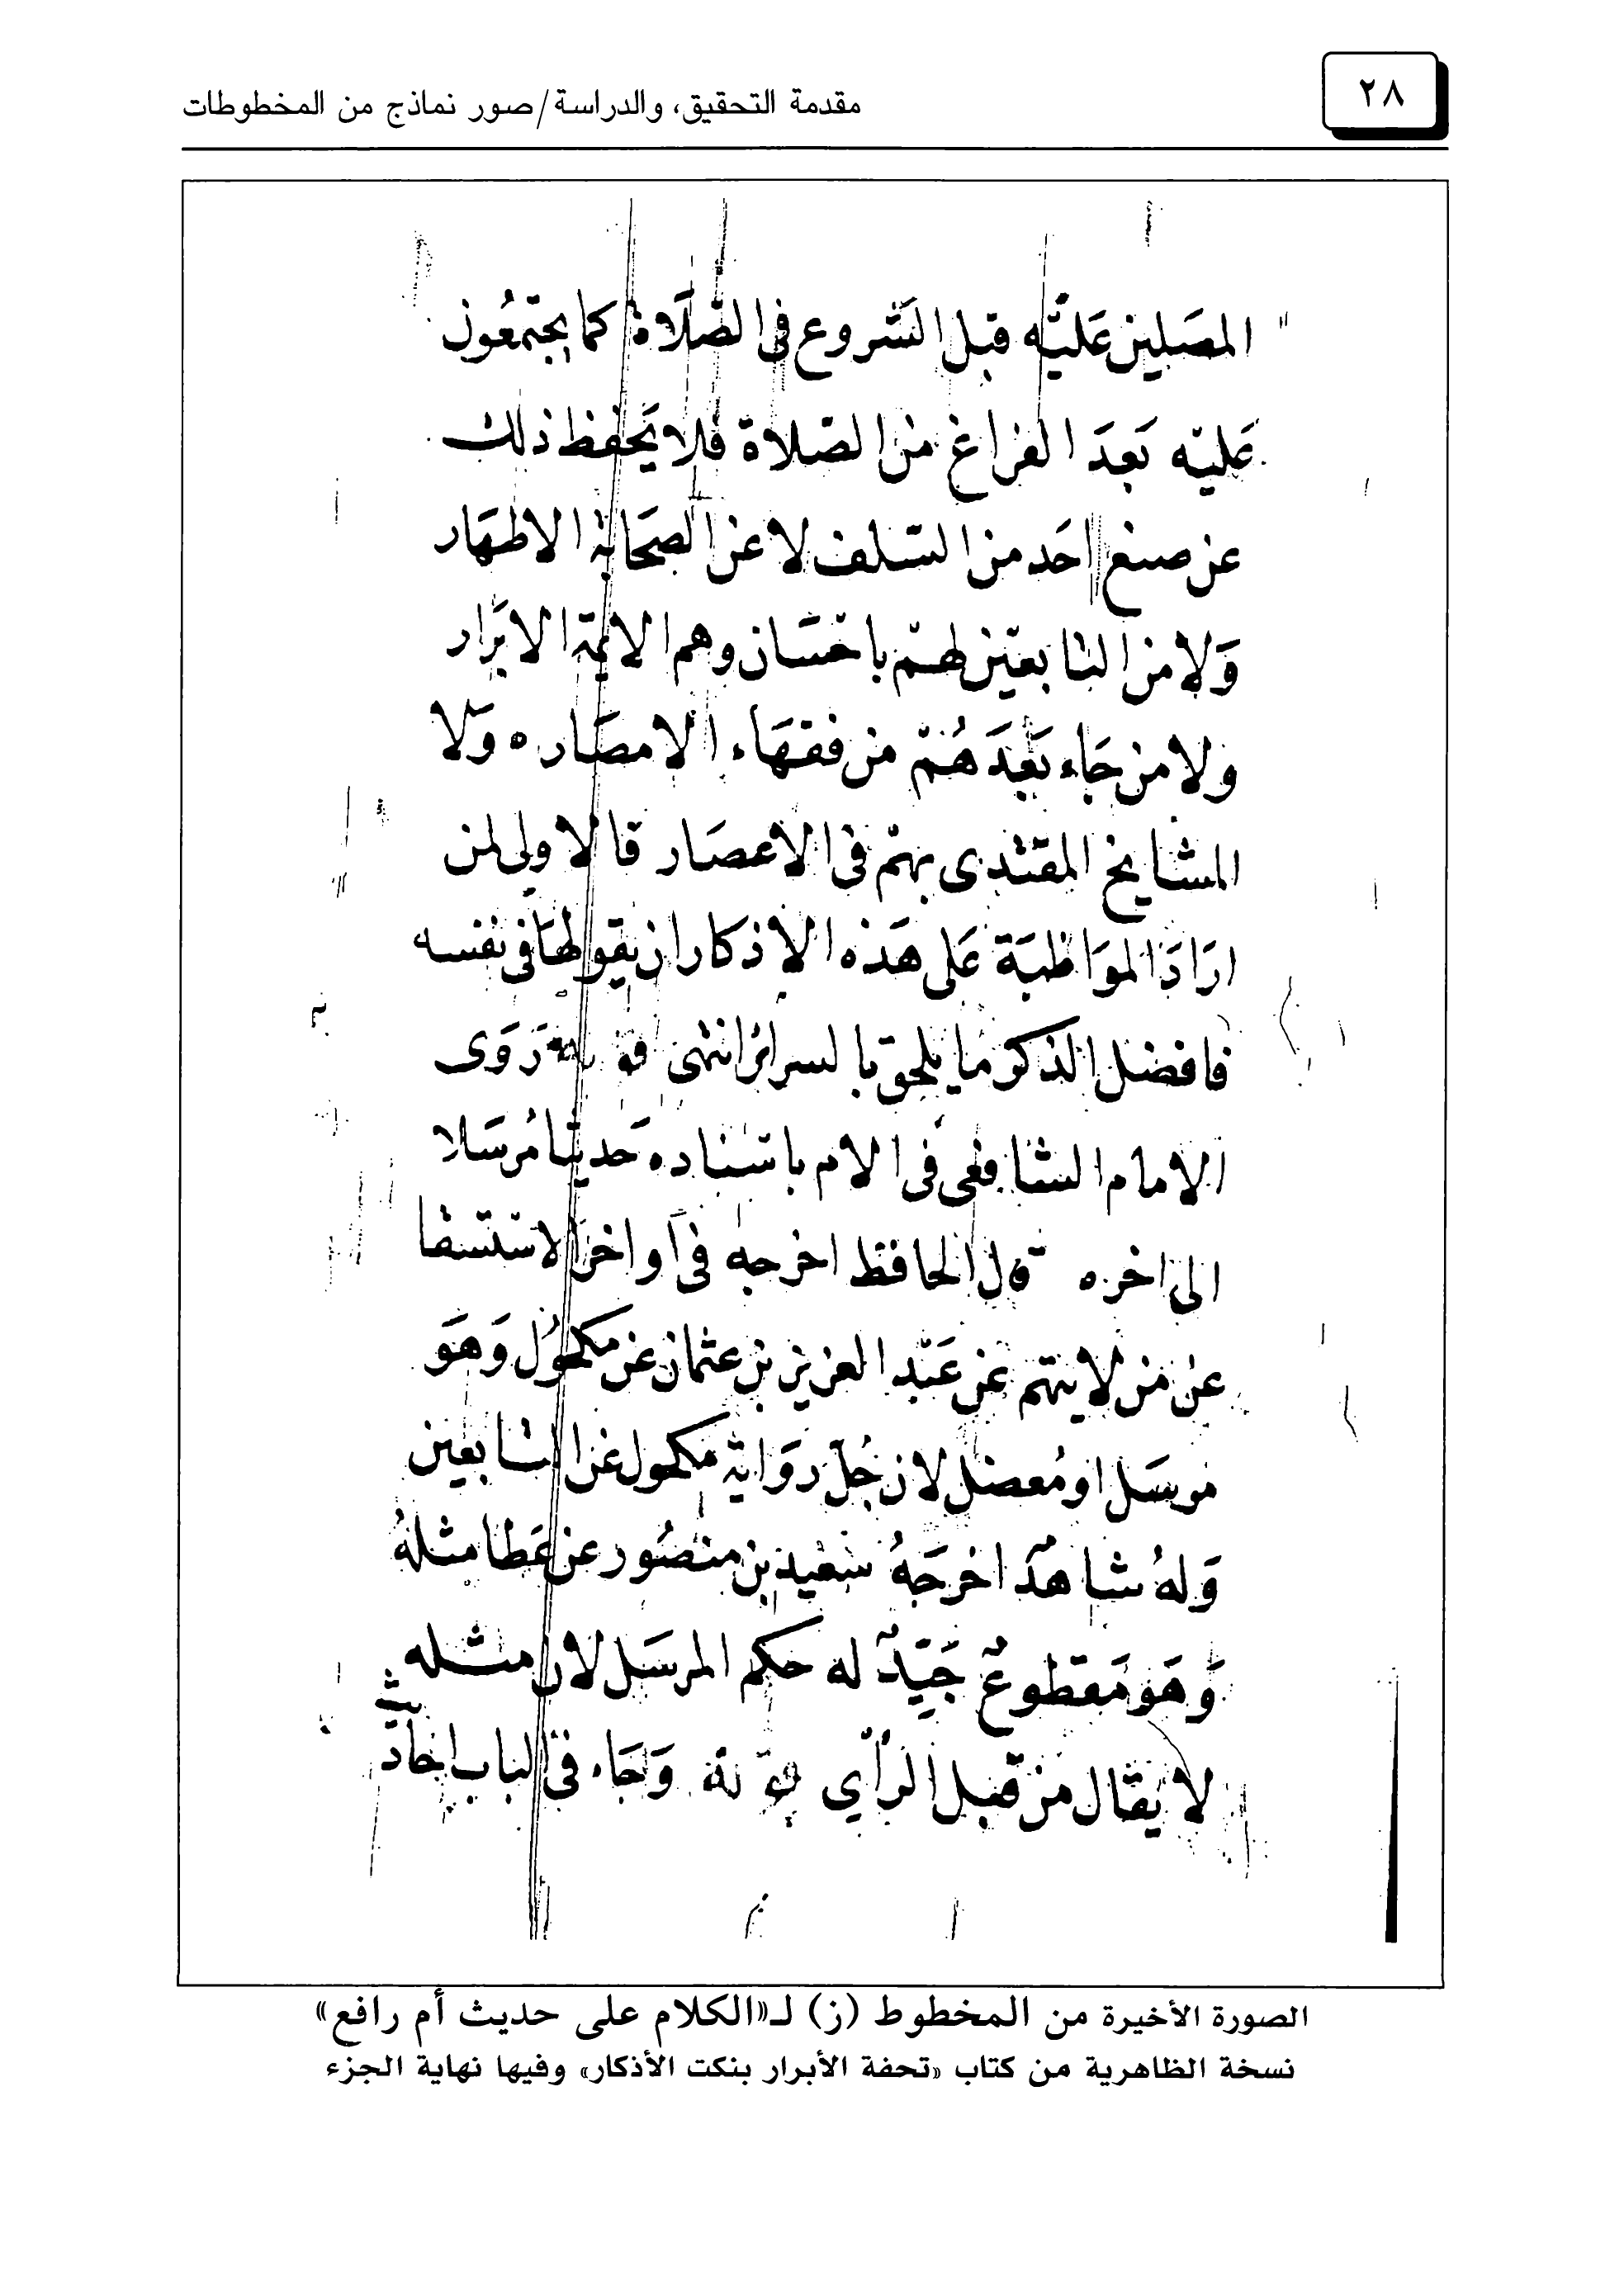 ٢٨
مقدمة التحقيق، والدراسة/صور نماذج من المخطوطات
المصَلين عَليْه قبل الشروع في الصَّلَاة كما يجتمعُون
عَليْه بَعدَ الفراغ من الصّلاة فلا يَحْفظ ذلك
عن صنع احَد من السّلف لا عن الصحَابة الاطهَار
وَلا من التابعيْن لهمْ باحْسَان وهم الايمة الابرَار
ولا من جَاء بَعْدَهُمْ من فقهَاء الامصَار ٥ وَلَا
المشايخ المقتدى بهمْ في الاعصَار قالاولى لمن
ارَادَ الموَاظبَة عَلى هَذه الاذكار ان يقولهَا في نفسه
فافضل الذكر ما يلحق بالسرائر انتهى قوله رَوَى
الامام الشافعي في الام باسْنَاده حَديثا مُرسَلا
الى اخره قال الحافظ اخرجه في أواخر الاسْتسقا
عن من لا يتهم عن عَبْد العزيز بن عثمان عن مكحُول وَهوَ
مرسَل او مُعضل لان جُلّ روَاية مكحول عن التابعين
وَلهُ شاهدٌ اخرجَهُ سَعيد بن منصُور عن عَطا مثلهُ
وَهوَ مَقطوعٌ جَيّدٌ له حكم المرسَل لان مثله
لا يقَال من قبل الرأي قوله وَجَاء في الباب احَاديث
الصورة الأخيرة من المخطوط (ز) لـ«الكلام على حديث أم رافع»
نسخة الظاهرية من كتاب «تحفة الأبرار بنكت الأذكار» وفيها نهاية الجزء